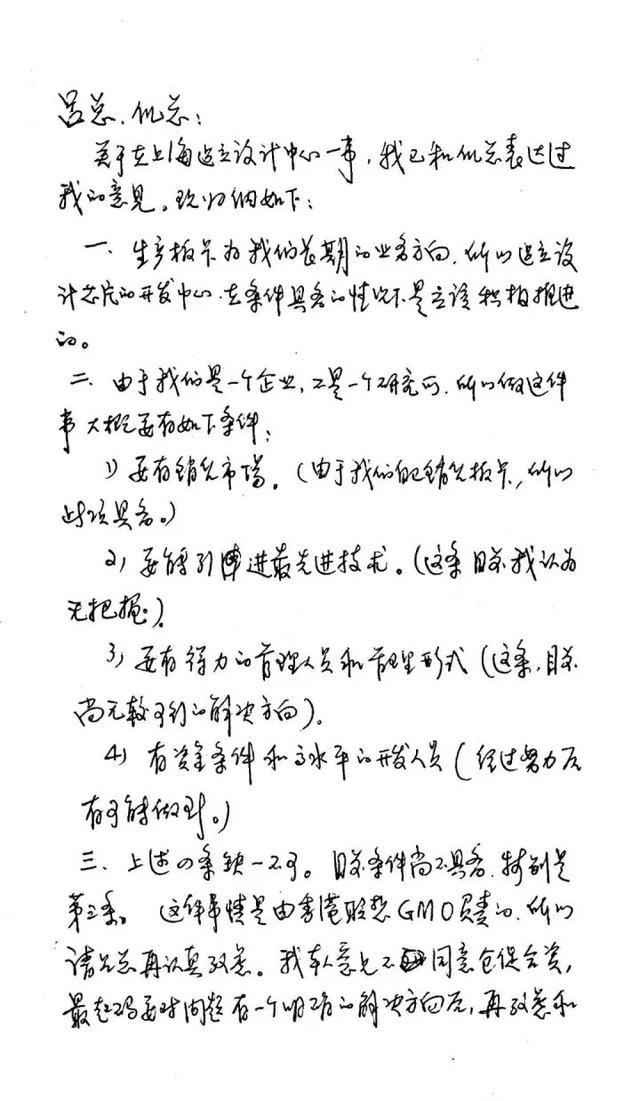 吕总、仉总：
关于在上海建立设计中心一事，我已和仉总表达过
我的意见。现归纳如下：
一、生产板卡为我们长期的业务方向，所以建立设
计芯片的开发中心在条件具备的情况下是应该积极推进
的。
二、由于我们是一个企业，不是一个研究所，所以做这件
事大概要有如下条件：
1) 要有销售市场。（由于我们自己销售板卡，所以
此项具备。）
2) 要能引进最先进技术。（这条目前我认为
无把握）。
3) 要有得力的管理人员和管理形式（这条，目前
尚无较可行的解决方向）。
4) 有资金条件和高水平的开发人员（经过努力后
有可能做到。）
三、上述四条缺一不可。目前条件尚不具备，特别是
第三条。这件事情是由香港联想GMO负责的，所以
请吕总再认真考虑。我本人意见不同意仓促合资，
最起码要对问题有一个明确的解决方向后，再考虑和